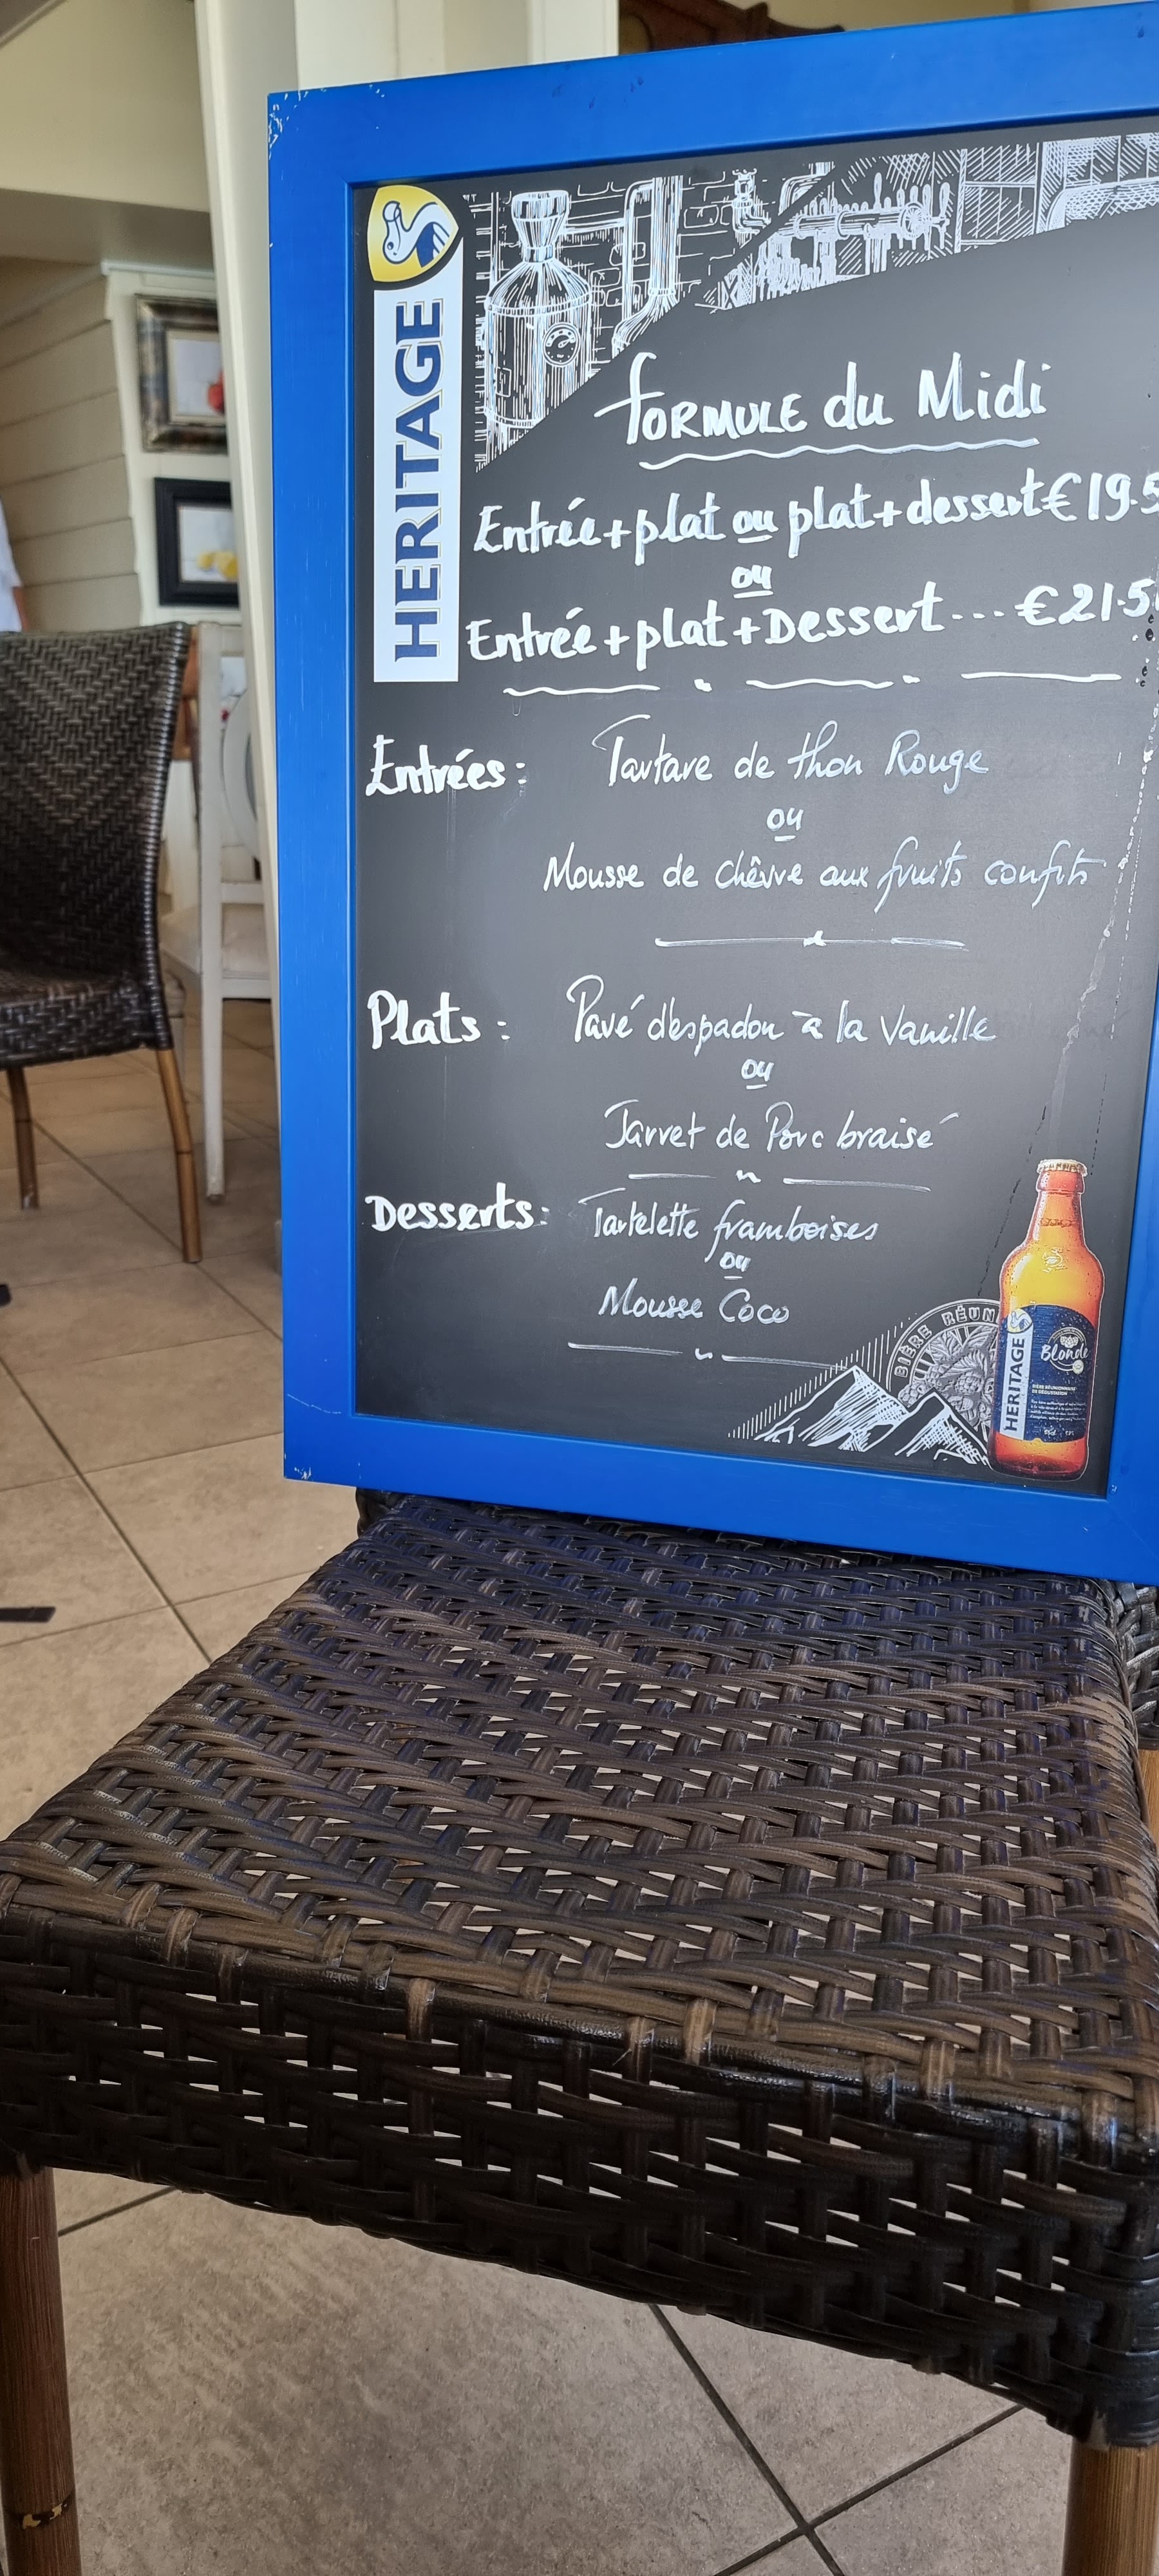 HERITAGE
FORMULE du Midi
Entrée+plat ou plat+dessert €19.5
ou
Entrée+plat+Dessert... €21.5
Entrées: Tartare de thon Rouge
ou
Mousse de chêvre aux fruits confits
Plats: Pavé d'espadon à la Vanille
ou
Jarret de Porc braisé
Desserts: Tartelette framboises
ou
Mousse Coco
BIÈRE RÉUN
HERITAGE
Blonde
BIÈRE RÉUNIONNAISE
DE DÉGUSTATION